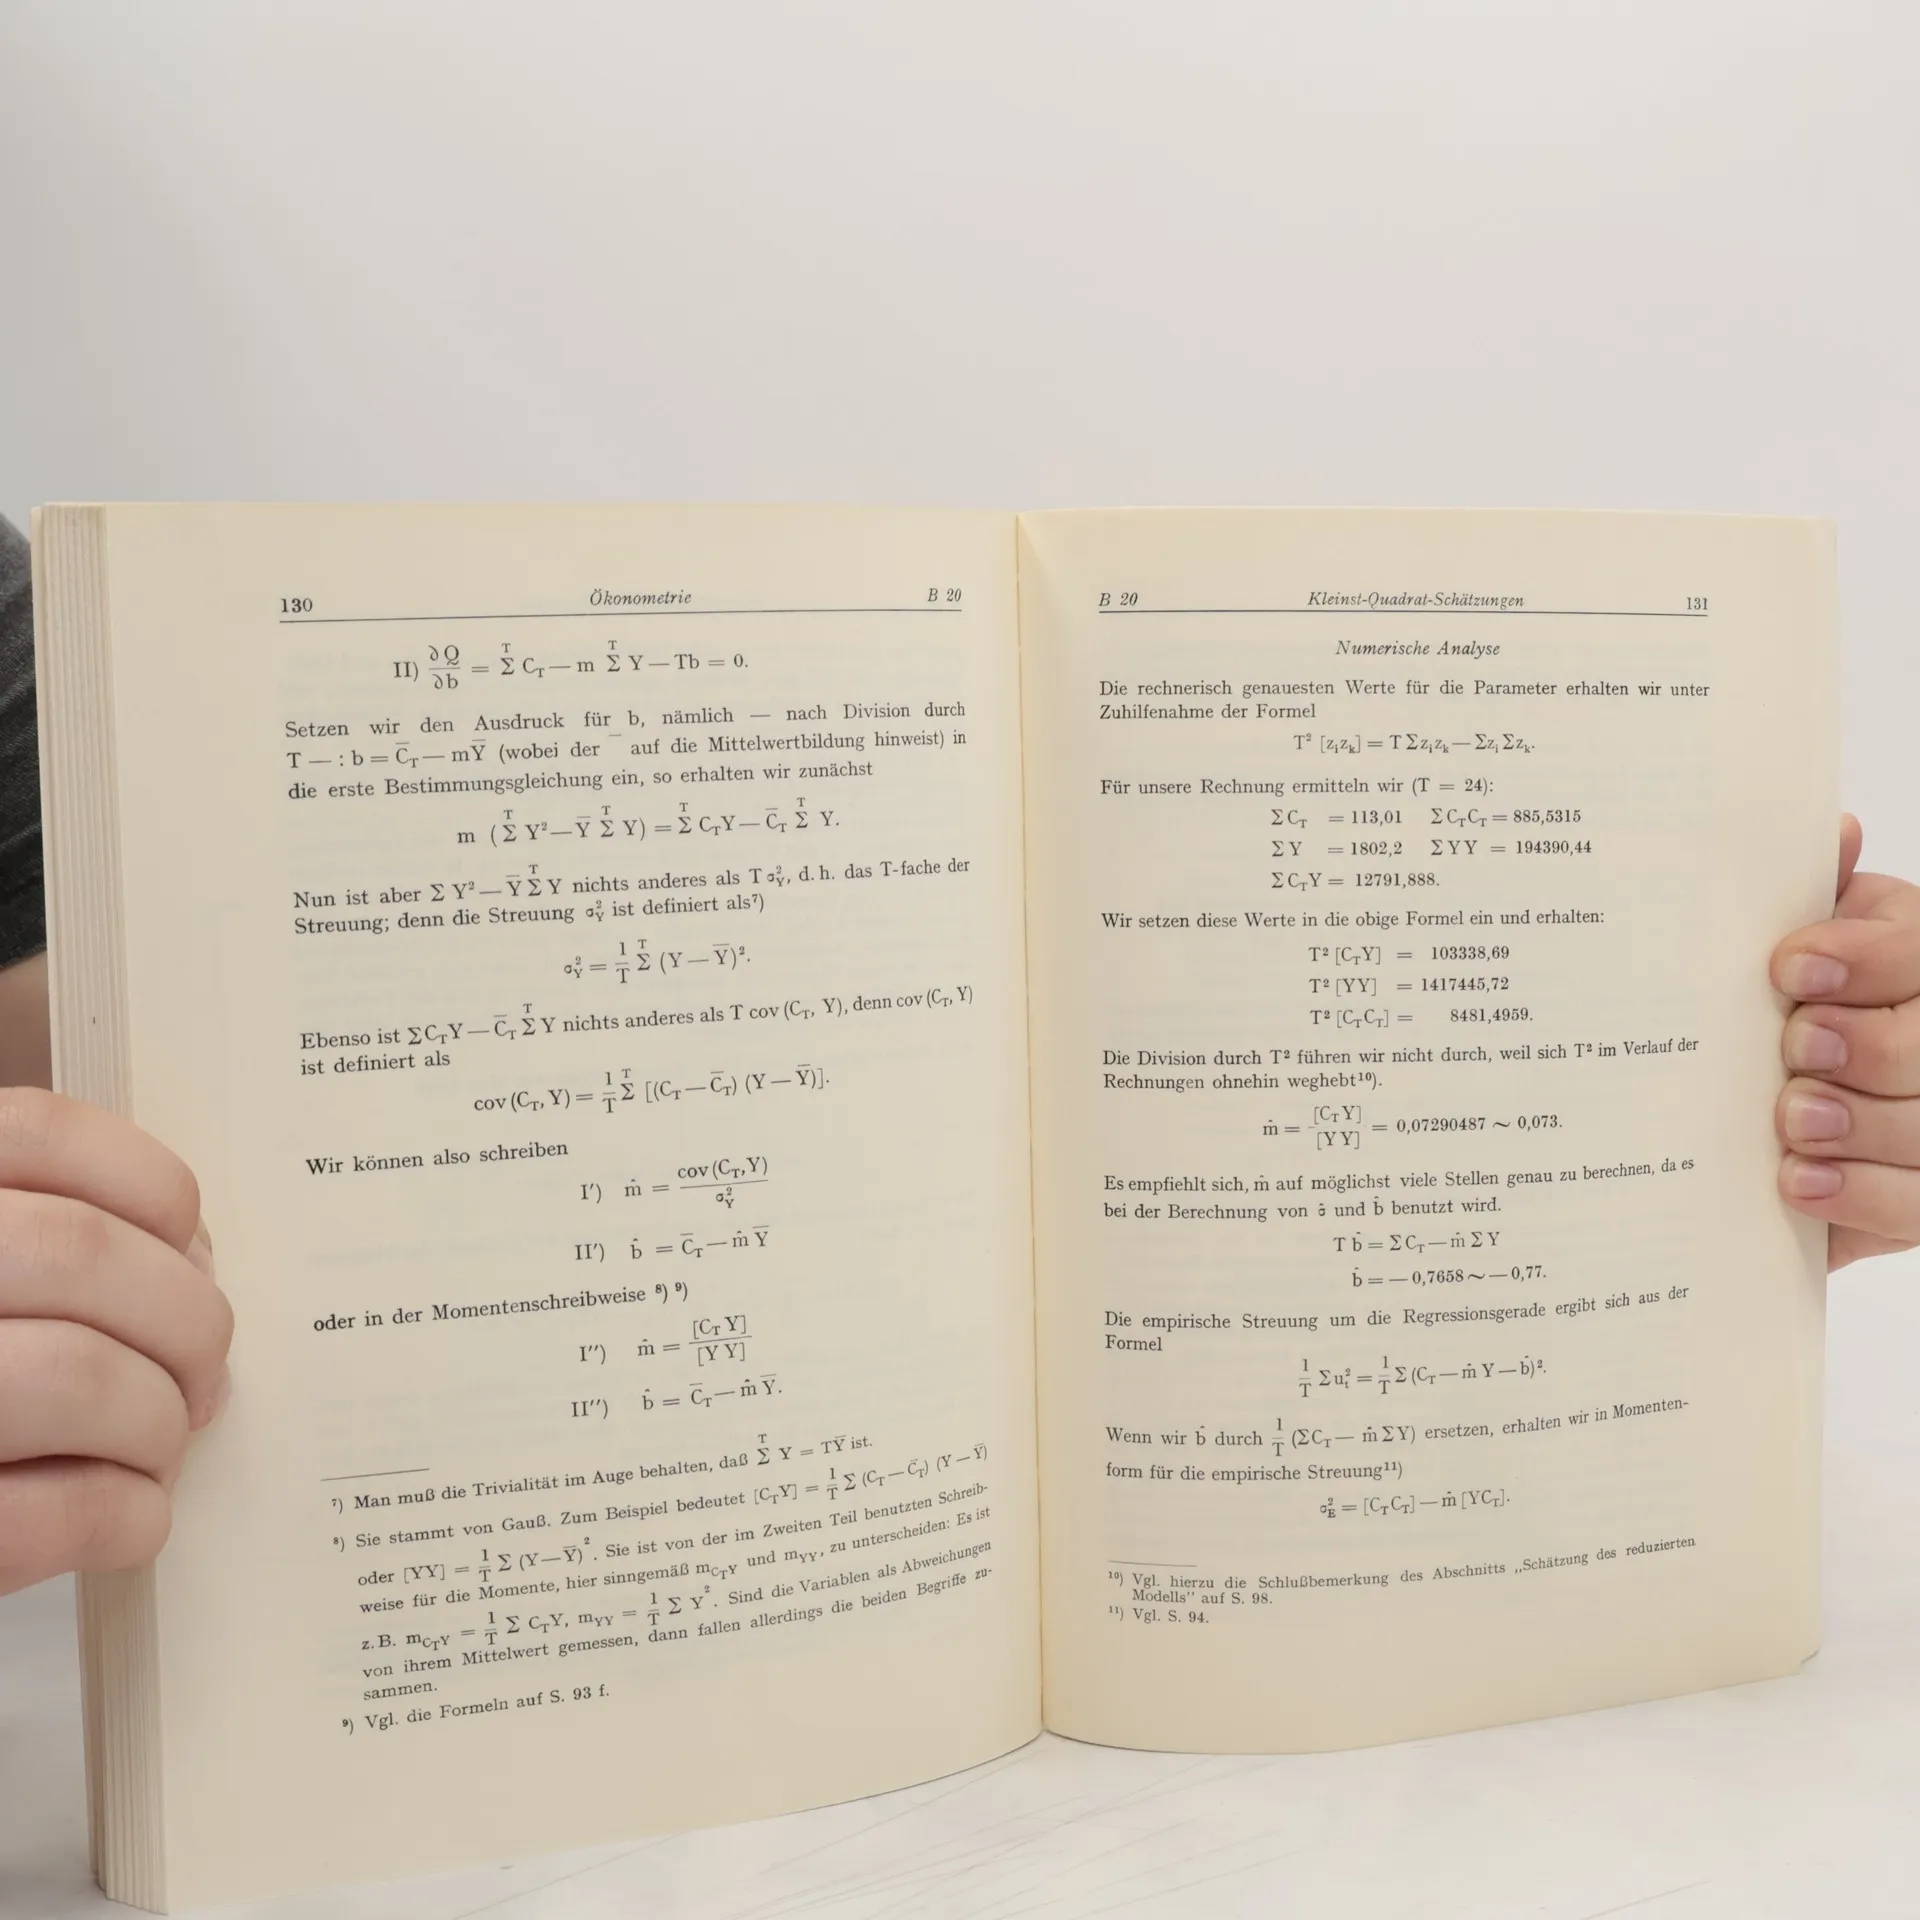 130 Ökonometrie B 20
II) ∂Q/∂b = Σ^T C_T — m Σ^T Y — Tb = 0.
Setzen wir den Ausdruck für b, nämlich — nach Division durch
T — : b = C̅_T — mY̅ (wobei der ¯ auf die Mittelwertbildung hinweist) in
die erste Bestimmungsgleichung ein, so erhalten wir zunächst
m (Σ^T Y² — Y̅ Σ^T Y) = Σ^T C_TY — C̅_T Σ^T Y.
Nun ist aber Σ Y² — Y̅ Σ^T Y nichts anderes als T σ²_Y, d. h. das T-fache der
Streuung; denn die Streuung σ²_Y ist definiert als⁷)
σ²_Y = 1/T Σ^T (Y — Y̅)².
Ebenso ist ΣC_TY — C̅_T Σ^T Y nichts anderes als T cov (C_T, Y), denn cov (C_T, Y)
ist definiert als
cov (C_T, Y) = 1/T Σ^T [(C_T — C̅_T) (Y — Y̅)].
Wir können also schreiben
I′) m̂ = cov (C_T, Y)/σ²_Y
II′) b̂ = C̅_T — m̂ Y̅
oder in der Momentenschreibweise ⁸) ⁹)
I″) m̂ = [C_T Y]/[Y Y]
II″) b̂ = C̅_T — m̂ Y̅.
⁷) Man muß die Trivialität im Auge behalten, daß Σ^T Y = TY̅ ist.
⁸) Sie stammt von Gauß. Zum Beispiel bedeutet [C_TY] = 1/T Σ (C_T — C̅_T) (Y — Y̅)
oder [YY] = 1/T Σ (Y — Y̅)². Sie ist von der im Zweiten Teil benutzten Schreib-
weise für die Momente, hier sinngemäß m_{C_TY} und m_YY, zu unterscheiden: Es ist
z. B. m_{C_TY} = 1/T Σ C_TY, m_YY = 1/T Σ Y². Sind die Variablen als Abweichungen
von ihrem Mittelwert gemessen, dann fallen allerdings die beiden Begriffe zu-
sammen.
⁹) Vgl. die Formeln auf S. 93 f.
B 20 Kleinst-Quadrat-Schätzungen 131
Numerische Analyse
Die rechnerisch genauesten Werte für die Parameter erhalten wir unter
Zuhilfenahme der Formel
T² [z_iz_k] = T Σz_iz_k — Σz_i Σz_k.
Für unsere Rechnung ermitteln wir (T = 24):
ΣC_T = 113,01 ΣC_TC_T = 885,5315
ΣY = 1802,2 ΣYY = 194390,44
ΣC_TY = 12791,888.
Wir setzen diese Werte in die obige Formel ein und erhalten:
T² [C_TY] = 103338,69
T² [YY] = 1417445,72
T² [C_TC_T] = 8481,4959.
Die Division durch T² führen wir nicht durch, weil sich T² im Verlauf der
Rechnungen ohnehin weghebt¹⁰).
m̂ = [C_T Y]/[Y Y] = 0,07290487 ∼ 0,073.
Es empfiehlt sich, m̂ auf möglichst viele Stellen genau zu berechnen, da es
bei der Berechnung von σ̂ und b̂ benutzt wird.
T b̂ = ΣC_T — m̂ ΣY
b̂ = — 0,7658 ∼ — 0,77.
Die empirische Streuung um die Regressionsgerade ergibt sich aus der
Formel
1/T Σu²_t = 1/T Σ (C_T — m̂ Y — b̂)².
Wenn wir b̂ durch 1/T (ΣC_T — m̂ ΣY) ersetzen, erhalten wir in Momenten-
form für die empirische Streuung¹¹)
σ²_E = [C_TC_T] — m̂ [YC_T].
¹⁰) Vgl. hierzu die Schlußbemerkung des Abschnitts „Schätzung des reduzierten
Modells" auf S. 98.
¹¹) Vgl. S. 94.